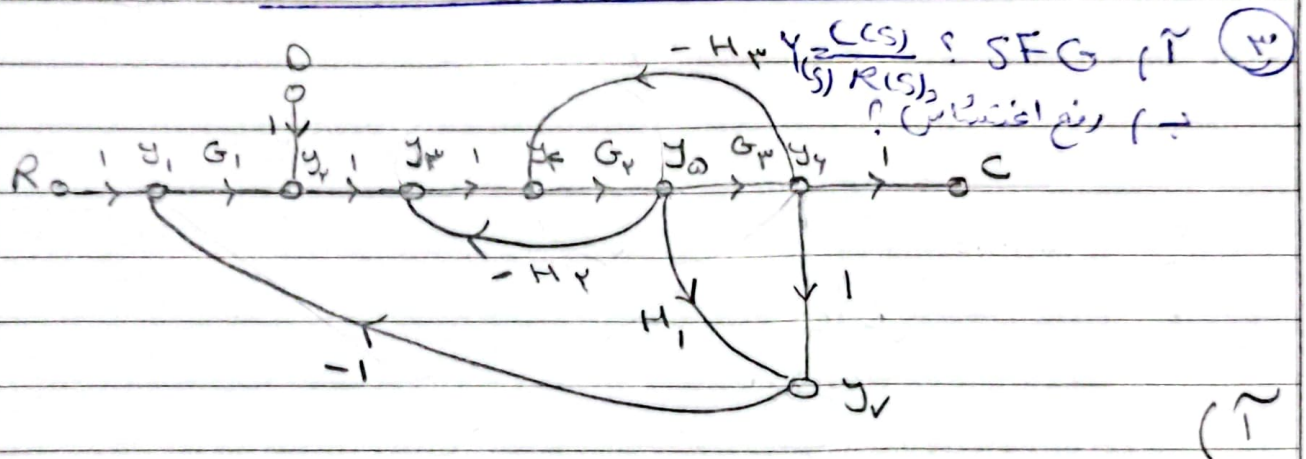 ۳ آ) SFG ؟ Y(s) = C(s) / R(s)
ب) رفع اغتشاش ؟
- H۳
D
1
R 1 y۱ G۱ y۲ 1 y۳ 1 y۴ G۲ y۵ G۳ y۶ 1 C
- H۲
H۱
1
-1
y۷
آ)